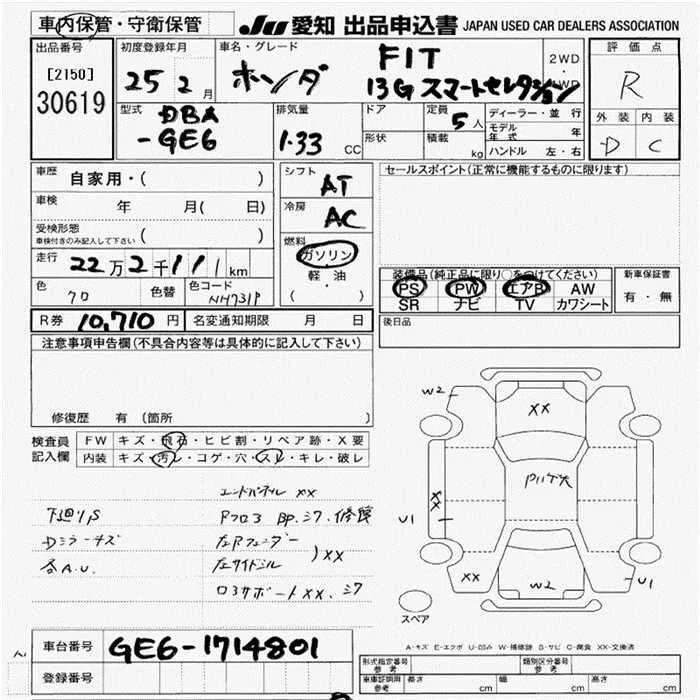 車内保管・守衛保管
JU 愛知 出品申込書 JAPAN USED CAR DEALERS ASSOCIATION
出品番号
[2150]
30619
初度登録年月
25 2月
車名・グレード
ホンダ
FIT
13G スマートセレクション
2WD
・
4WD
評価点
R
外装 内装
D C
型式
DBA
-GE6
排気量
1.33 CC
ドア
形状
定員 5人
積載 kg
ディーラー・並行
モデル年式 年
ハンドル 左・右
車歴 自家用・( )
車検 年 月( 日)
受検形態 ( )
車検付きのみ記入して下さい
走行 22万2千111km
色 クロ
色替
色コード NH731P
シフト AT
冷房 AC
燃料
ガソリン
軽・油
( ・ )
セールスポイント(正常に機能するものに限ります)
装備品(純正品に限り○をつけてください)
PS PW エアB AW
SR ナビ TV カワシート
新車保証書
有・無
R券 10,710円
名変通知期限 月 日
後日品
注意事項申告欄(不具合内容等は具体的に記入して下さい)
修復歴 有 (箇所
検査員
記入欄
FW キズ・飛石・ヒビ割・リペア跡・X要
内装 キズ・汚レ・コゲ・穴・スレ・キレ・破レ
エンドパネル XX
下廻りS
Dミラーキズ
各A.U.
Rフロア BP.シワ.修
左Rフェンダー
左サイドシル
)XX
コアサポートXX.シワ
W2
XX
XX
U1
XX
W2
U1
スペア
A・キズ E・エクボ U・凹み W・補修跡 S・サビ C・腐食 XX・交換済
車台番号 GE6-1714801
登録番号
形式指定番号
参考
類別区分番号
参考
車庫証明用
参考
長さ cm
幅 cm
高さ cm